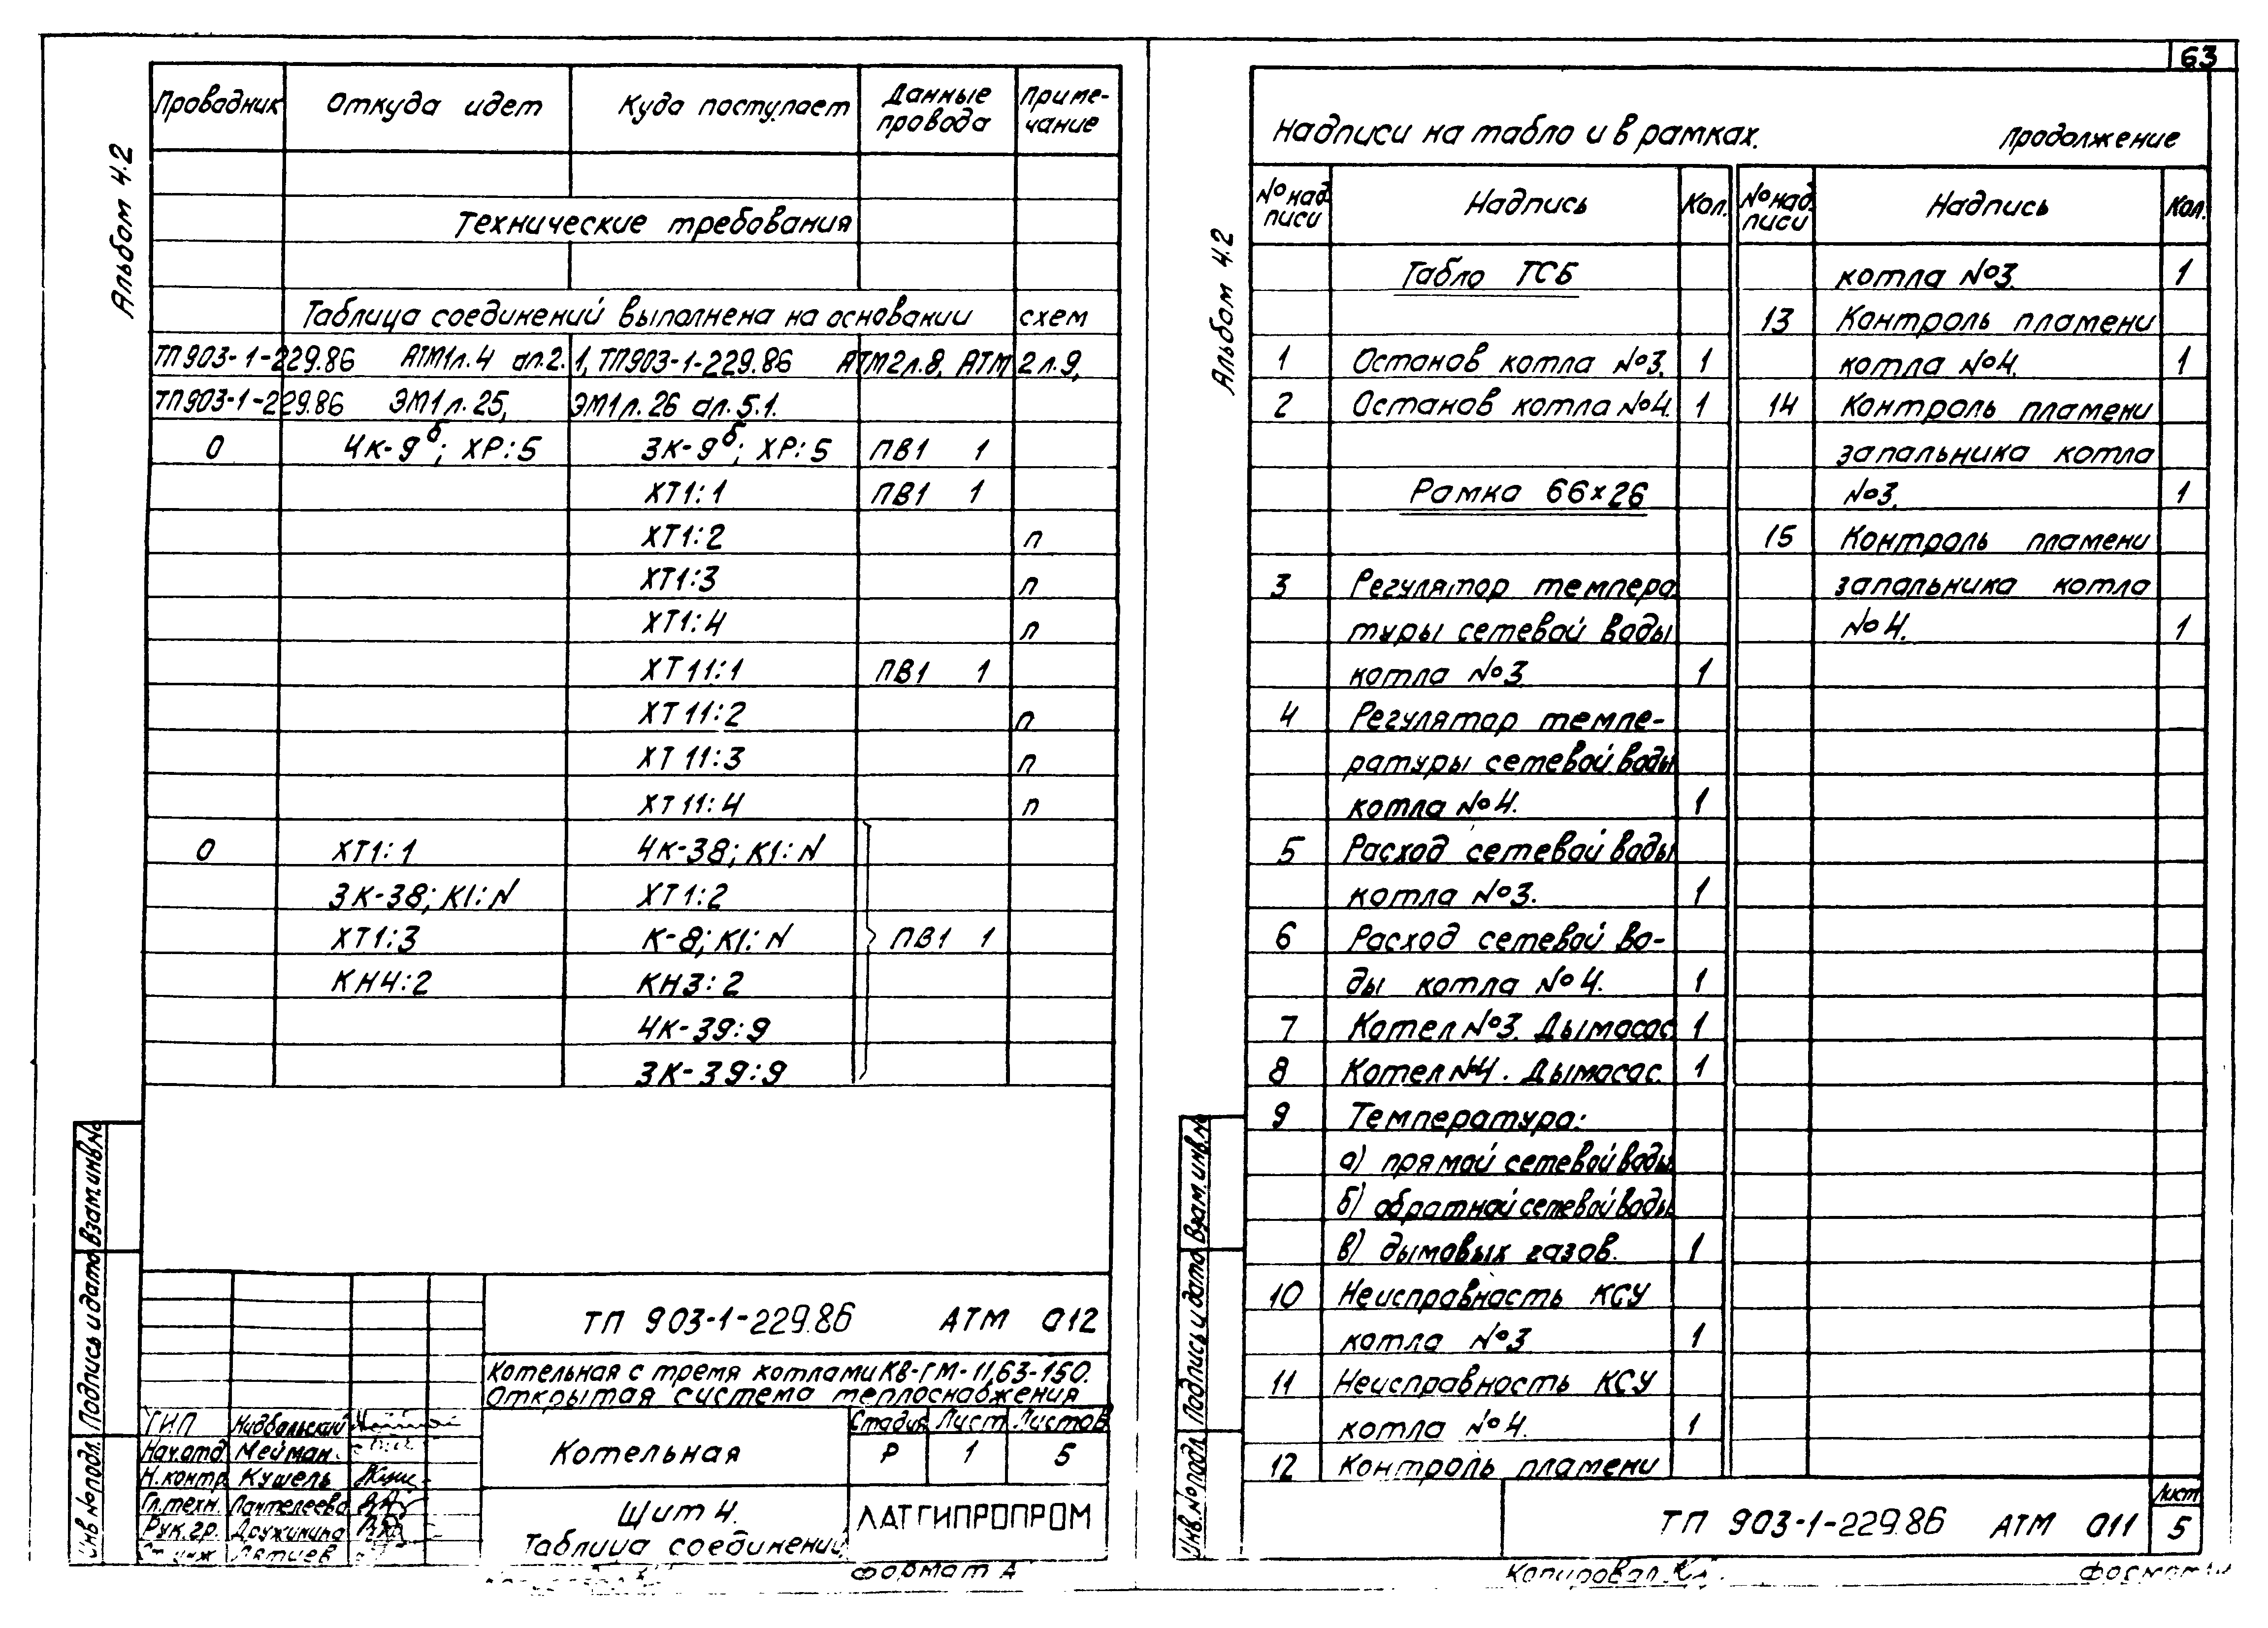 63
Альбом 4.2
Проводник Откуда идет Куда поступает Данные провода Приме-чание
Технические требования
Таблица соединений выполнена на основании схем
ТП903-1-229.86 АТМ1л.4 ал.2.1, ТП903-1-229.86 АТМ2л.8, АТМ2л.9,
ТП903-1-229.86 ЭМ1л.25, ЭМ1л.26 ал.5.1.
0 4К-9б; ХР:5 3К-9б; ХР:5 ПВ1 1
ХТ1:1 ПВ1 1
ХТ1:2 п
ХТ1:3 п
ХТ1:4 п
ХТ11:1 ПВ1 1
ХТ11:2 п
ХТ11:3 п
ХТ11:4 п
0 ХТ1:1 4К-38; К1:N
3К-38; К1:N ХТ1:2
ХТ1:3 К-8; К1:N ПВ1 1
КН4:2 КН3:2
4К-39:9
3К-39:9
Инв.№подл. Подпись и дата Взам.инв.№
ТП 903-1-229.86 АТМ 012
Котельная с тремя котлами КВ-ГМ-11,63-150.
Открытая система теплоснабжения
ГИП
Нач.отд. Мейман
Н.контр. Кушель
Гл.техн. Пантелеева
Рук.гр. Дружинина
Ст.инж.
Котельная
Стадия Лист Листов
Р 1 5
Щит 4.
Таблица соединений
ЛАТГИПРОПРОМ
Формат А
Альбом 4.2
Надписи на табло и в рамках. Продолжение
№ над-писи Надпись Кол. № над-писи Надпись Кол.
Табло ТСБ
1 Останов котла №3. 1
2 Останов котла №4. 1
Рамка 66х26
3 Регулятор темпера
туры сетевой воды
котла №3 1
4 Регулятор темпе-
ратуры сетевой воды
котла №4. 1
5 Расход сетевой воды
котла №3. 1
6 Расход сетевой во-
ды котла №4. 1
7 Котел №3. Дымосос. 1
8 Котел №4. Дымосос. 1
9 Температура:
а) прямой сетевой воды
б) обратной сетевой воды
в) дымовых газов. 1
10 Неисправность КСУ
котла №3 1
11 Неисправность КСУ
котла №4. 1
12 Контроль пламени
котла №3. 1
13 Контроль пламени
котла №4. 1
14 Контроль пламени
запальника котла
№3. 1
15 Контроль пламени
запальника котла
№4. 1
Инв.№подл. Подпись и дата Взам.инв.№
ТП 903-1-229.86 АТМ 011
Лист
5
Копировал
Формат